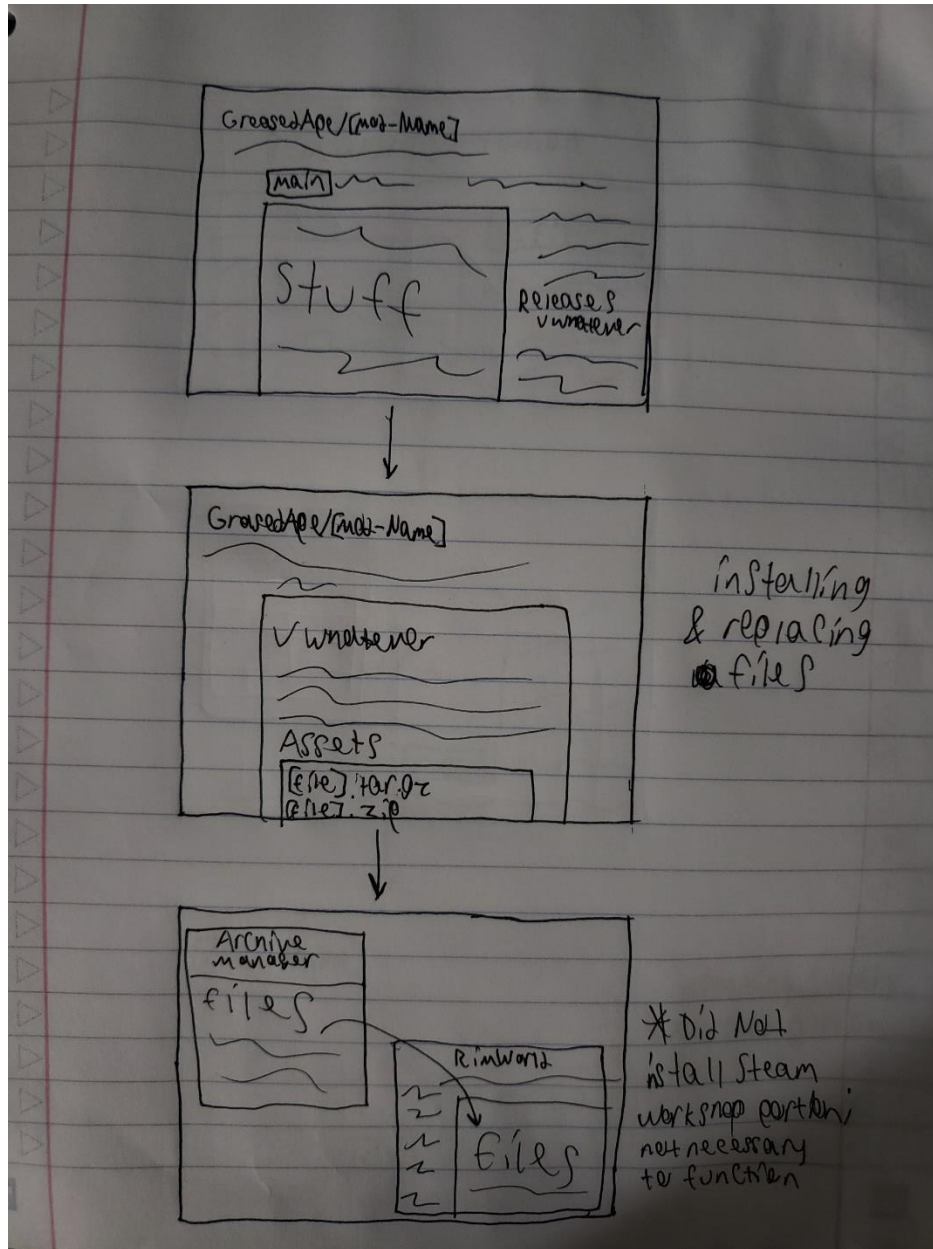 GreasedApe/[Mod-Name]
main
Stuff
Releases
v whatever
GreasedApe/[Mod-Name]
v whatever
Assets
[file].tar.gz
[file].zip
installing
& replacing
files
Archive
manager
files
RimWorld
files
* Did Not
install Steam
workshop portion;
not necessary
to function